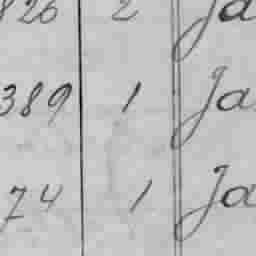 826 2 Ja
389 1 Ja
74 1 Ja